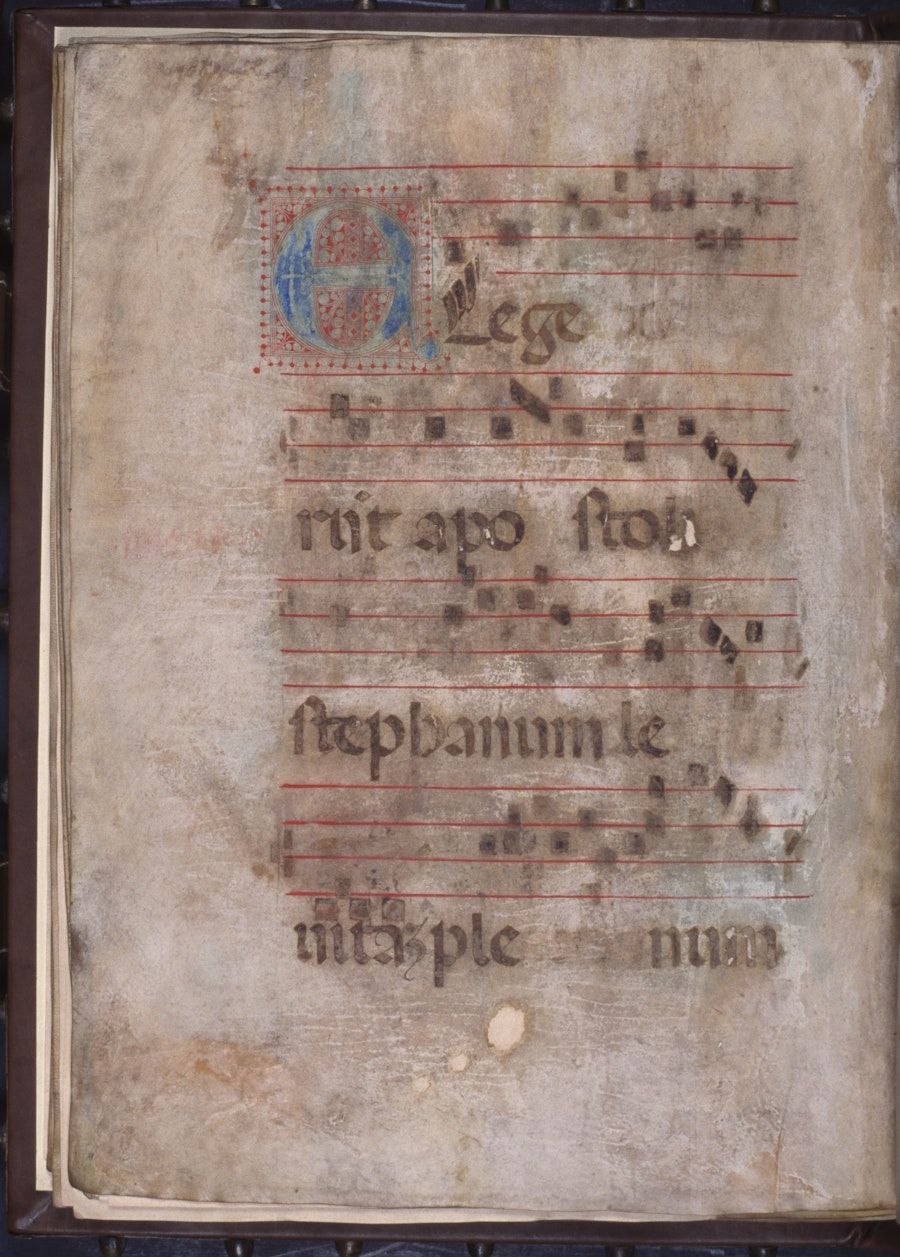 ELege
rũt apo stoli
stephanum le
uitaz ple num